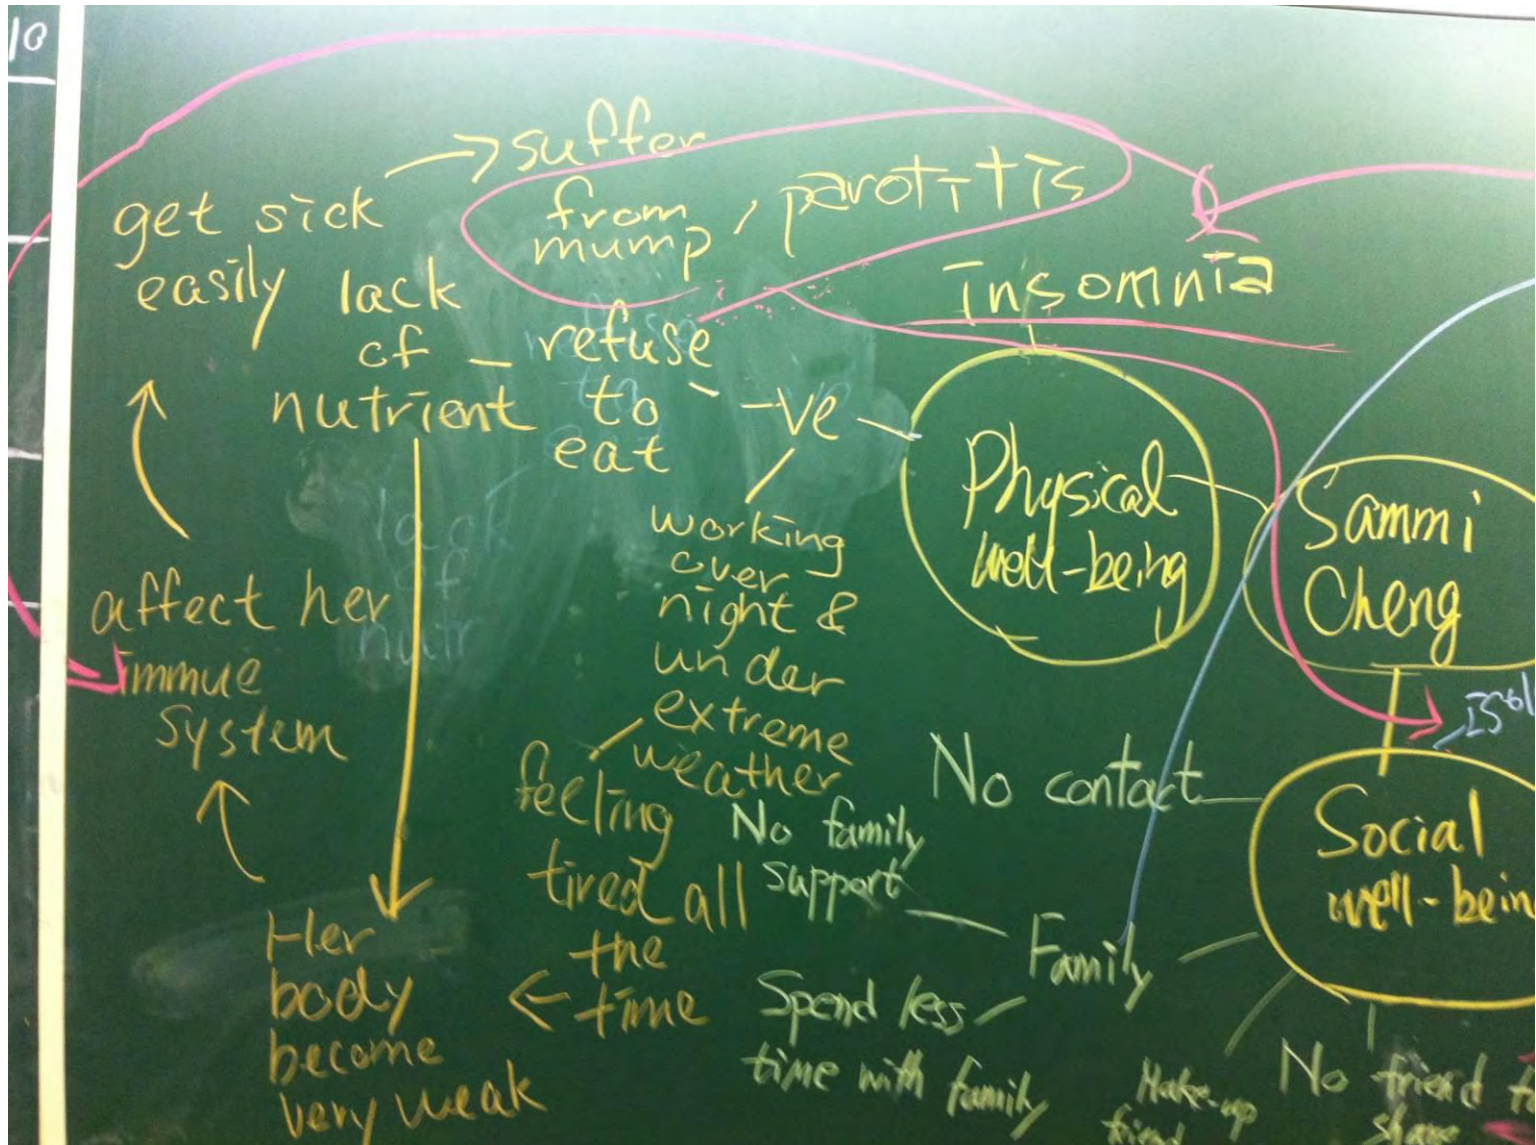 10
get sick
easily
suffer
from
mump, parotitis
lack
of
nutrient
refuse
to
eat
-ve
insomnia
Physical
well-being
Sammi
Cheng
working
over
night &
under
extreme
weather
affect her
immue
system
feeling
tired all
the
time
Her
body
become
very weak
No contact
No family
support
Family
Spend less
time with family
Social
well-bein
Make-up
friend
No friend
share